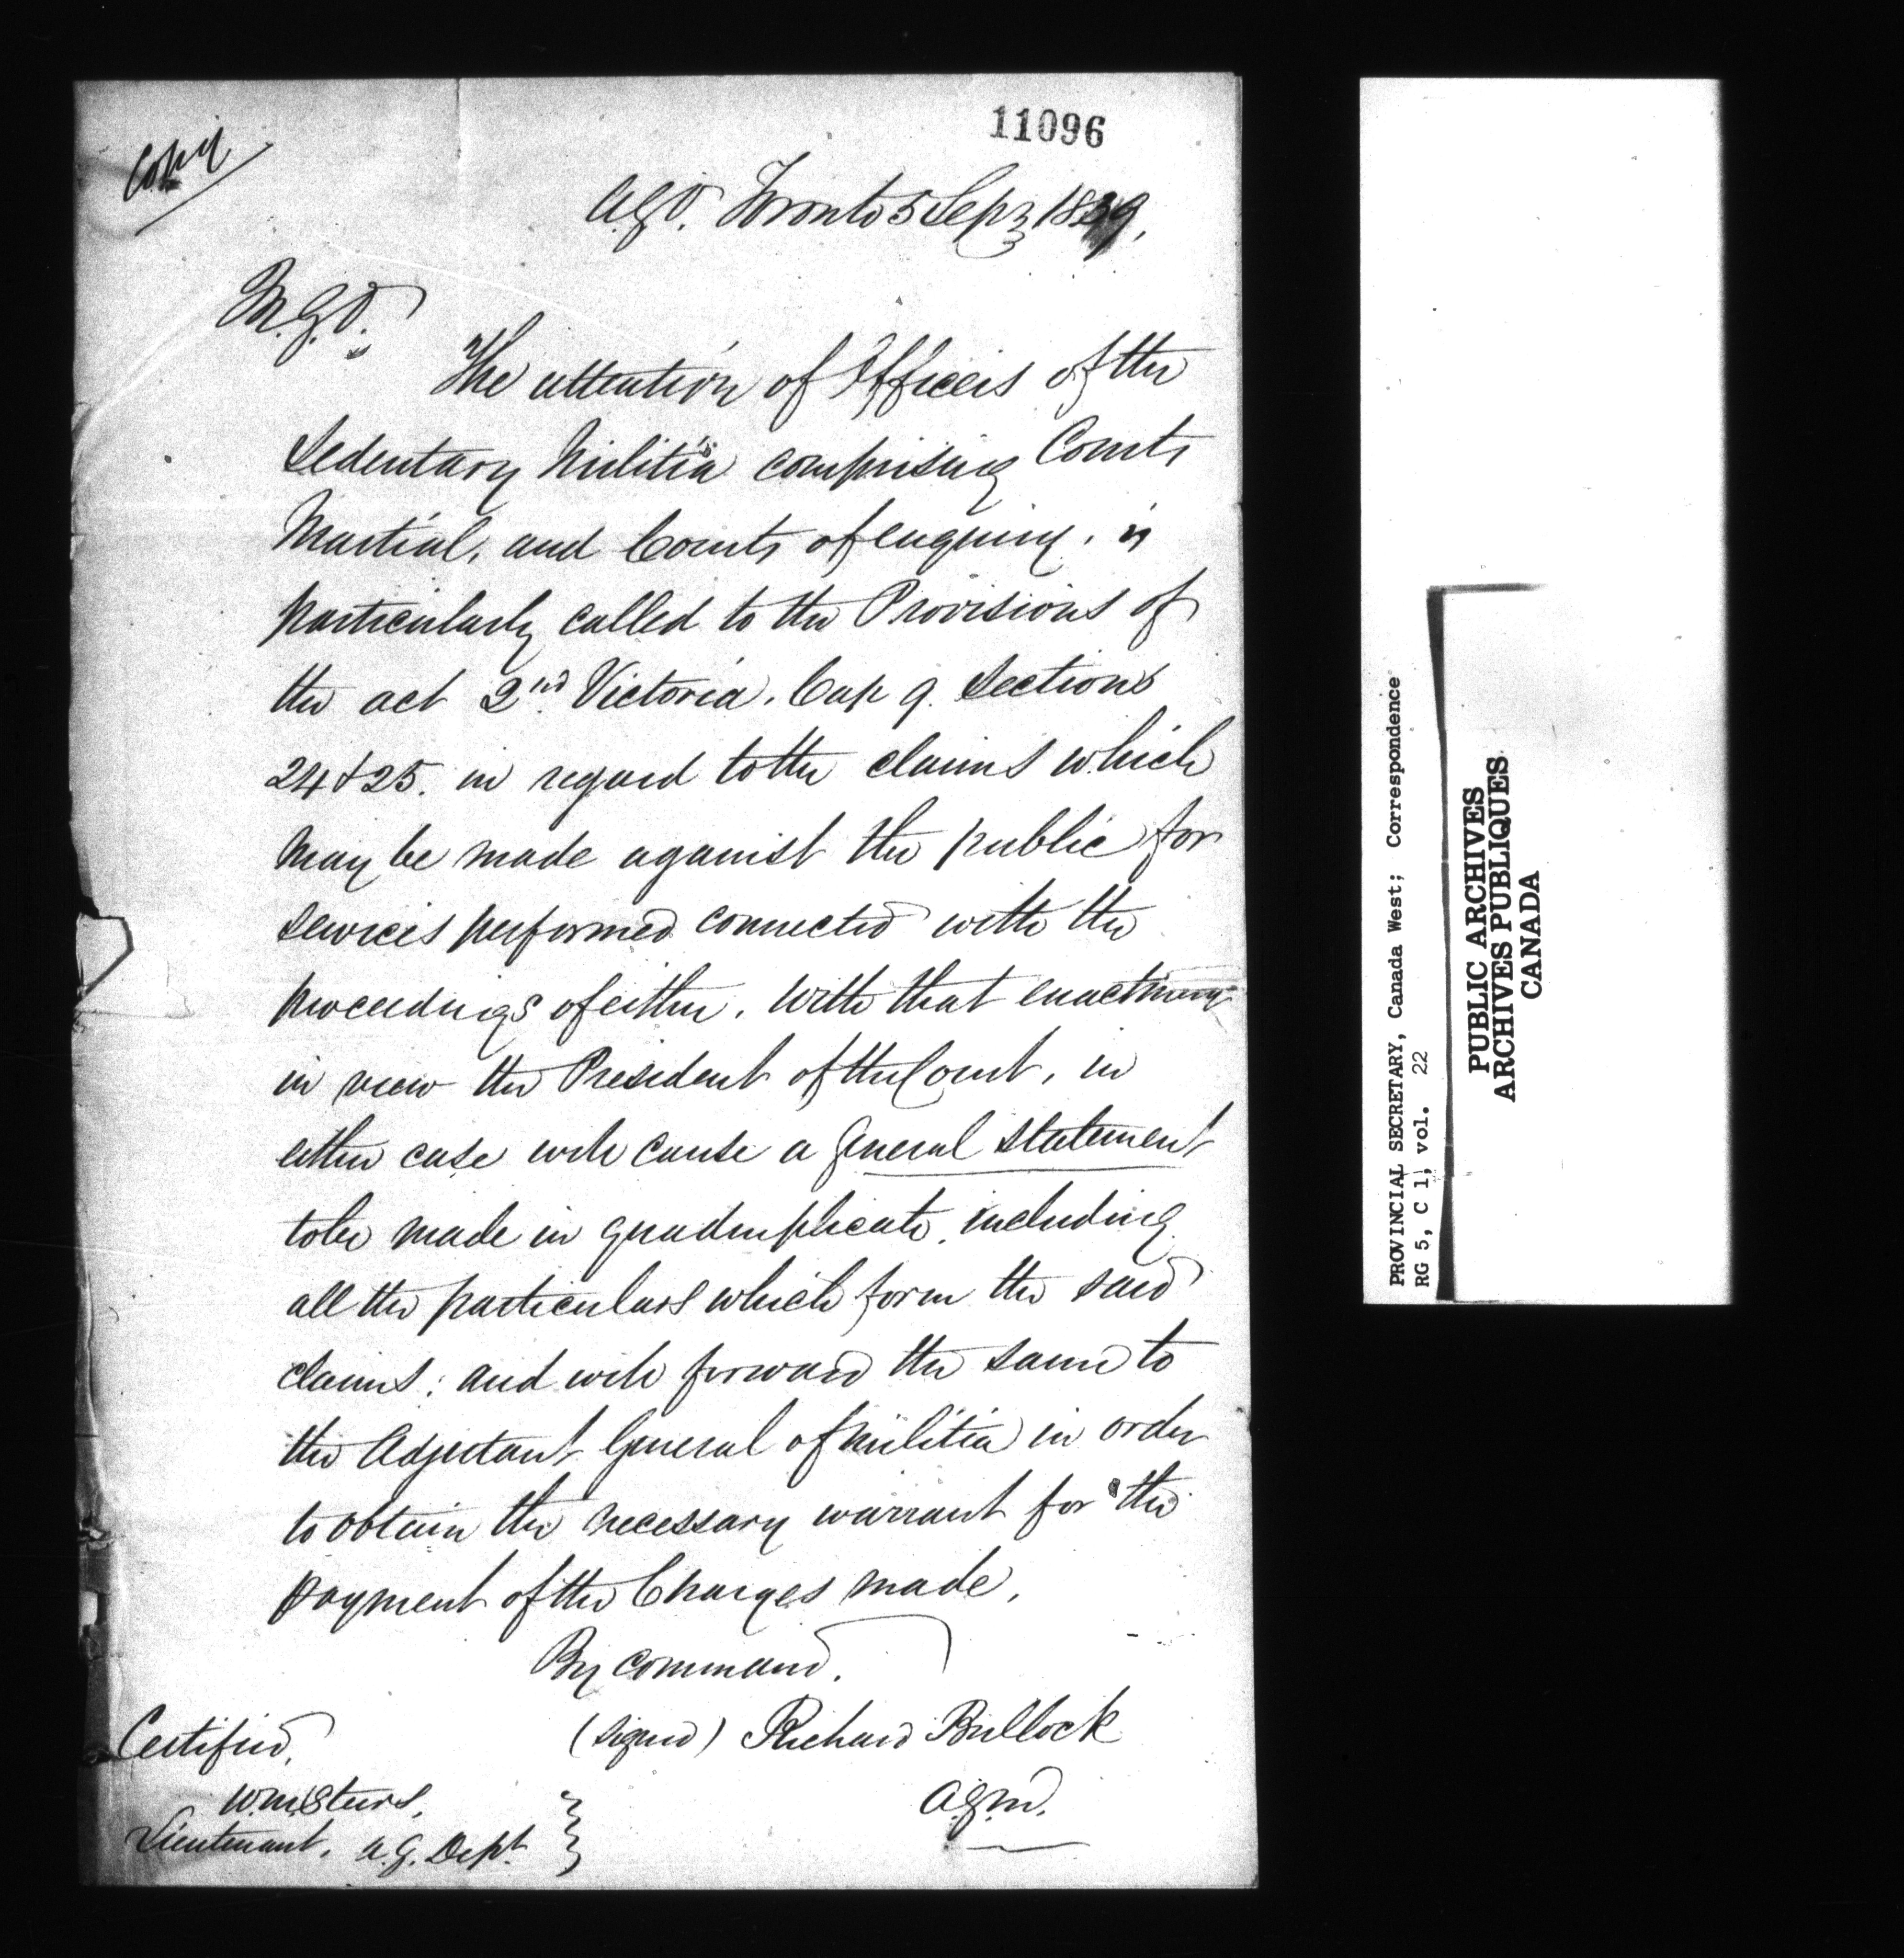 11096
Copy
A.G.O. Toronto 5 Sep 1839,
M.G.O.
The attention of Officers of the
Sedentary Militia comprising Courts
Martial, and Courts of enquiry, is
particularly called to the Provisions of
the act 2nd Victoria. Cap 9. Sections
24 & 25. in regard to the claims which
may be made against the public for
services performed connected with the
proceedings of either. With that enactment
in view the President of the Court, in
either case will cause a General Statement
to be made in quadruplicate, including
all the particulars which form the said
claims; and will forward the same to
the Adjutant General of Militia in order
to obtain the necessary warrant for the
payment of the Charges made.
By command.
(signed) Richard Bullock
A.G.M.
Certified,
Wm
Lieutenant, A.G. Dept.
PROVINCIAL SECRETARY, Canada West; Correspondence
RG 5, C 1, vol. 22
PUBLIC ARCHIVES
ARCHIVES PUBLIQUES
CANADA